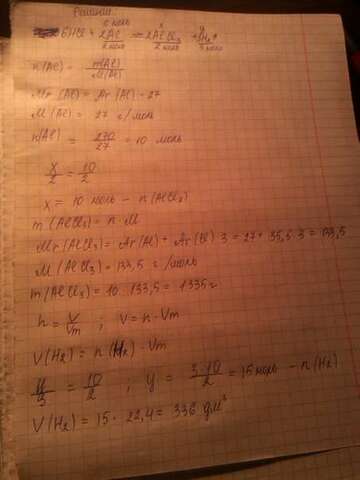 Решение:
x y
6HCl + 2Al = 2AlCl₃ + 3H₂↑
2 моль 2 моль 3 моль
n(Al) = m(Al)/M(Al)
Mr(Al) = Ar(Al) = 27
M(Al) = 27 г/моль
n(Al) = 270/27 = 10 моль
x/2 = 10/2
x = 10 моль – n(AlCl₃)
m(AlCl₃) = n · M
Mr(AlCl₃) = Ar(Al) + Ar(Cl)·3 = 27 + 35,5·3 = 133,5
M(AlCl₃) = 133,5 г/моль
m(AlCl₃) = 10 · 133,5 = 1335 г
n = V/Vm ; V = n · Vm
V(H₂) = n(H₂) · Vm
y/3 = 10/2 ; y = 3·10/2 = 15 моль – n(H₂)
V(H₂) = 15 · 22,4 = 336 дм³